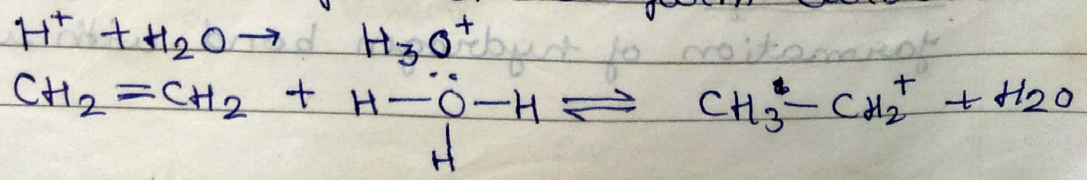 H⁺ + H2O → H3O⁺
CH2 = CH2 + H – Ö – H ⇌ CH3 – CH2⁺ + H2O
H